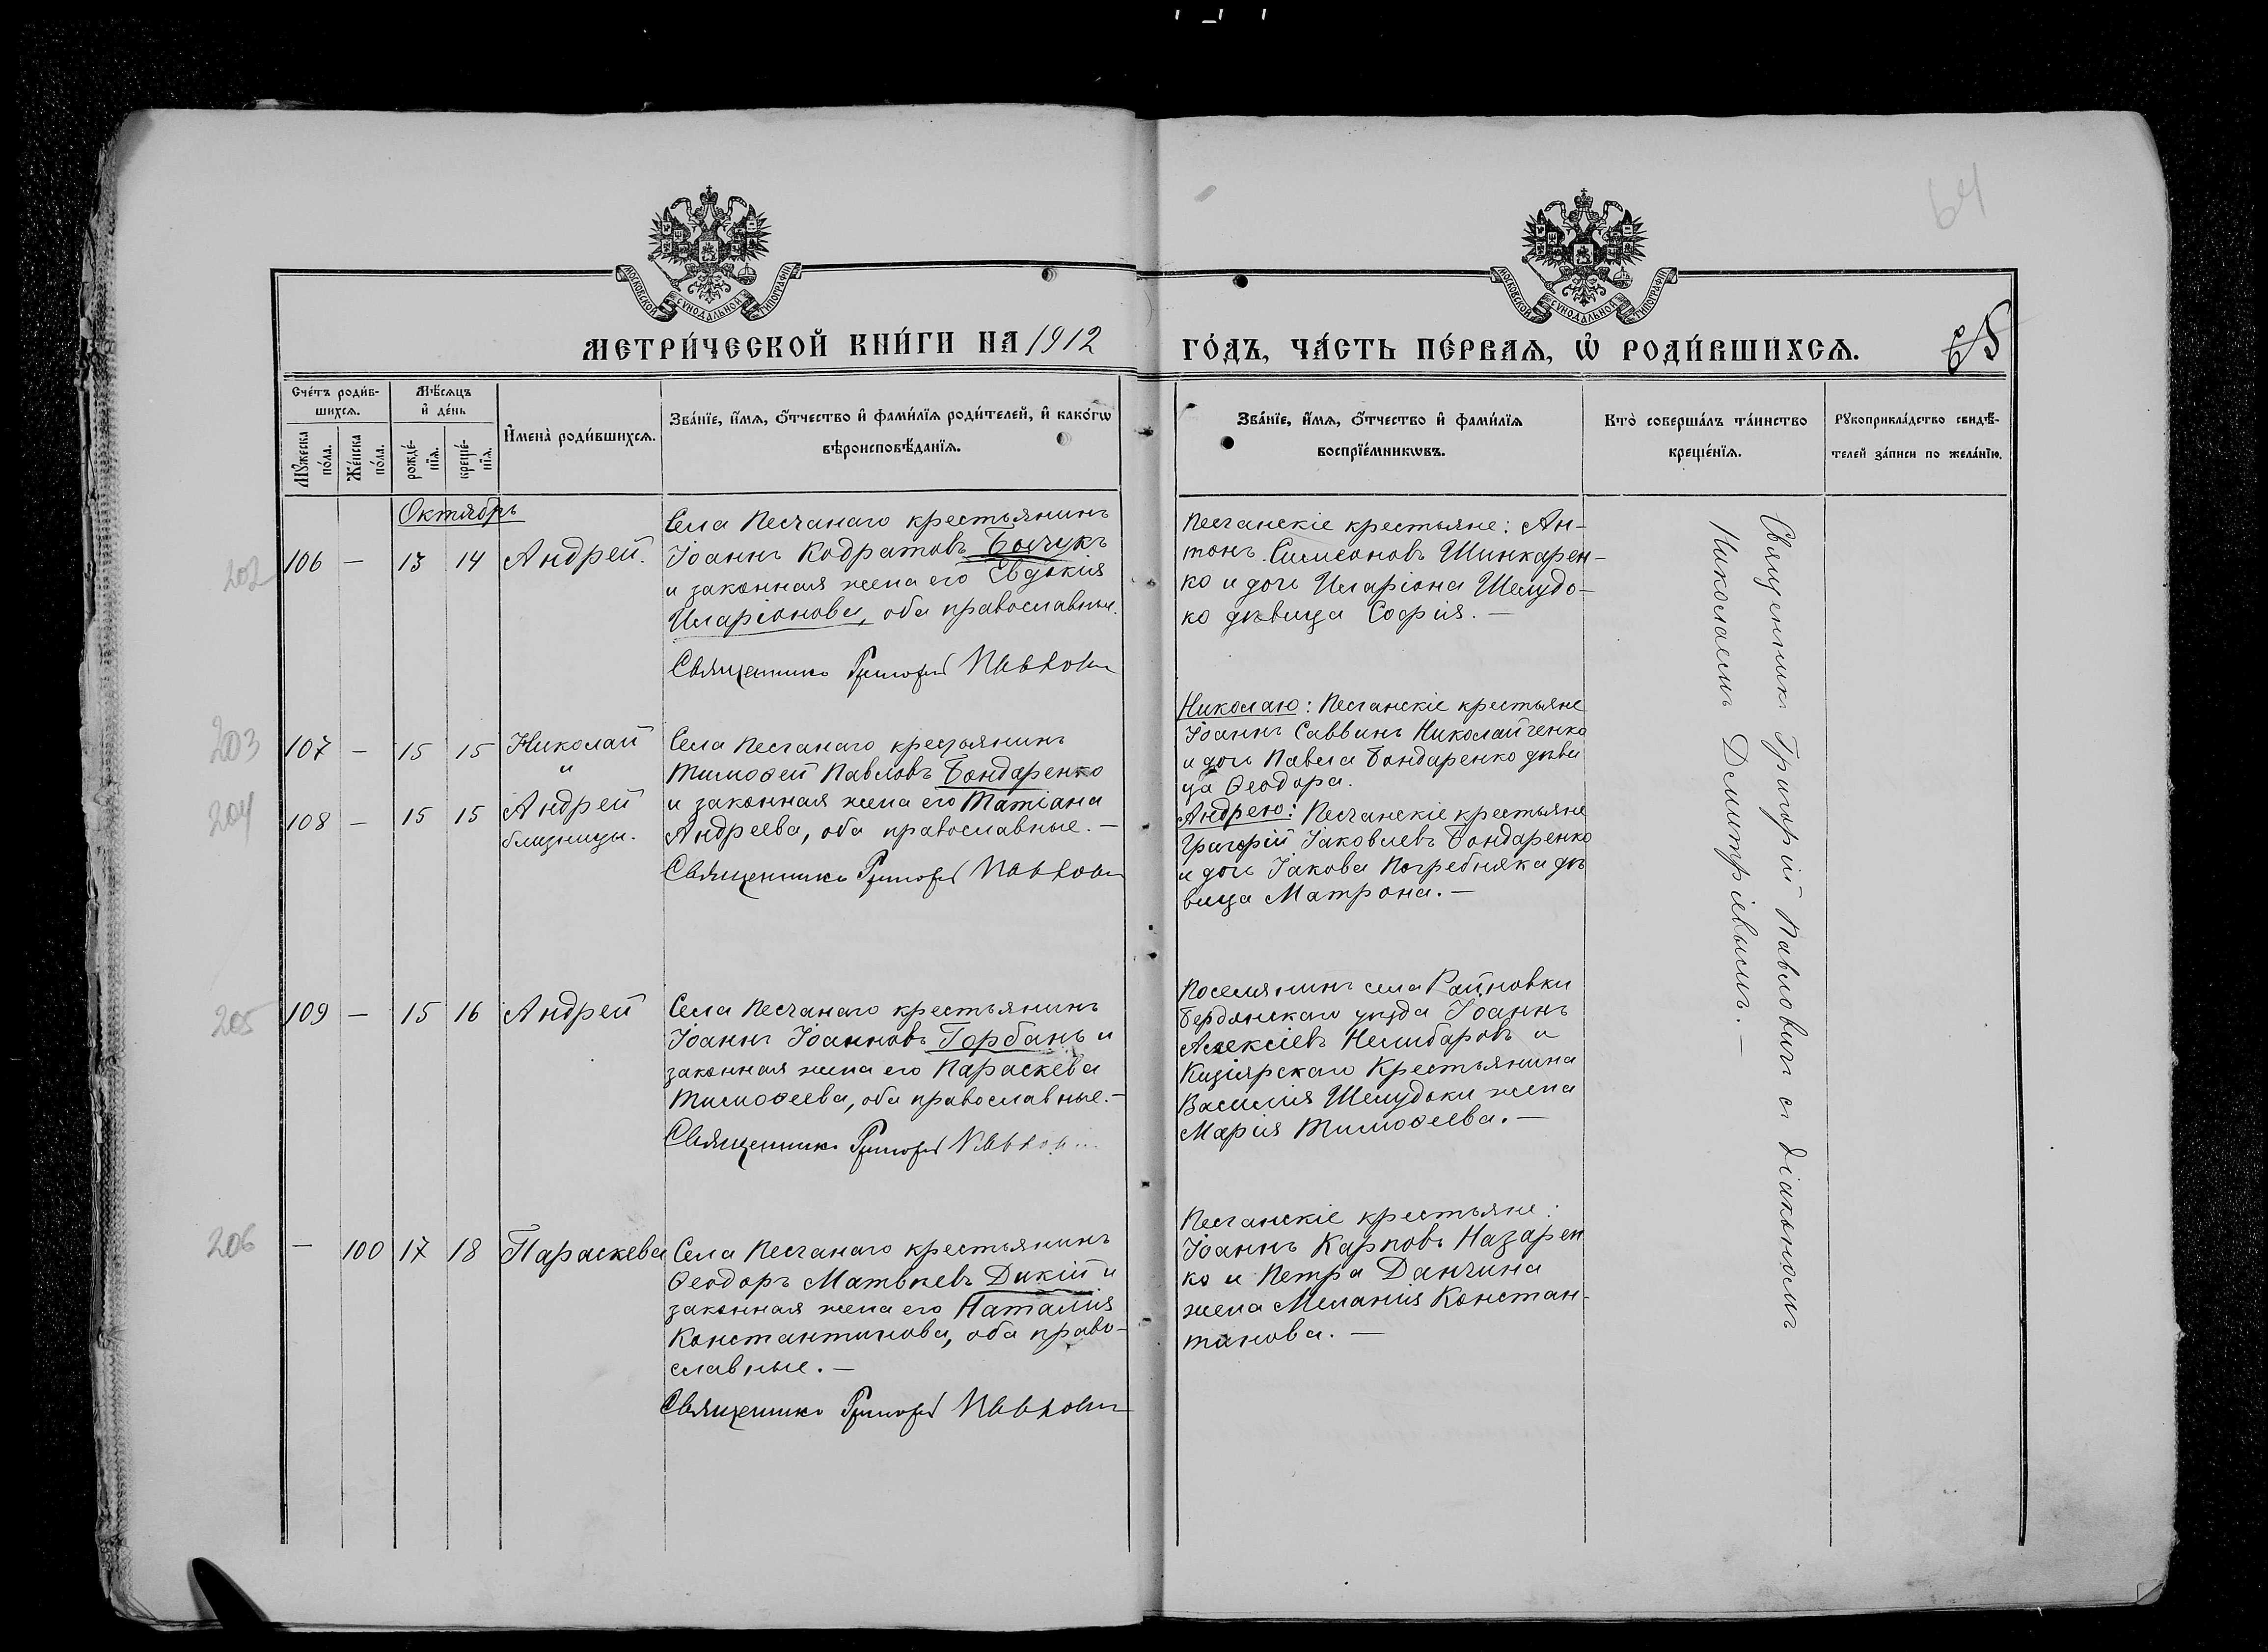 64
МОСКОВСКОЙ СѴНОДАЛЬНОЙ ТИПОГРАФІИ
МОСКОВСКОЙ СѴНОДАЛЬНОЙ ТИПОГРАФІИ
МЕТРИ́ЧЕСКОЙ КНИ́ГИ НА 1912
ГО́ДЪ, ЧА́СТЬ ПЕ́РВАѦ, Ѡ҆ РОДИ́ВШИХСѦ.
Сче́тъ роди́в-
шихсѧ.
Мꙋ́жеска по́ла.
Же́нска по́ла.
Мѣ́сѧцъ
и҆ де́нь
рожде́-
нїѧ.
креще́-
нїѧ.
И҆мена̀ роди́вшихсѧ.
Зва́нїе, и҆́мѧ, ѻ҆́тчество и҆ фами́лїѧ роди́телей, и҆ како́гѡ
вѣроисповѣ́данїѧ.
Зва́нїе, и҆́мѧ, ѻ҆́тчество и҆ фами́лїѧ
воспрїе́мникѡвъ.
Кто̀ соверша́лъ та́инство
креще́нїѧ.
Рꙋкоприкла́дство свидѣ́-
телей за́писи по жела́нїю.
Октябрь
202 106 — 13 14 Андрей.
Села Песчанаго крестьянинъ
Іоаннъ Кодратовъ Бычукъ
и законная жена его Евдокия
Иларіонова, оба православны.
Священникъ Григорій Павлович
Песчанскіе крестьяне: Ан-
тонъ Симеоновъ Шинкарен-
ко и дочь Иларіона Шелудо-
ко дѣвица Софія. —
203 107 — 15 15 Николай
и
204 108 — 15 15 Андрей
близнецы.
Села Песчанаго крестьянинъ
Тимоѳей Павловъ Бондаренко
и законная жена его Татіана
Андреева, оба православные. —
Священникъ Григорій Павлович
Николаю: Песчанскіе крестьяне
Іоаннъ Саввинъ Николайченко
и дочь Павла Бондаренко дѣви
ца Ѳеодора.
Андрею: Песчанскіе крестьяне
Григорій Іаковлевъ Бондаренко
и дочь Іакова Погребняка дѣ
вица Матрона. —
205 109 — 15 16 Андрей
Села Песчанаго крестьянинъ
Іоаннъ Іоанновъ Горбань и
законная жена его Параскева
Тимоѳеева, оба православные. —
Священникъ Григорій Павлович
Поселянинъ села Райновки
Бердянскаго уѣзда Іоаннъ
Алексіевъ Нелибаровъ и
Кизіярскаго Крестьянина
Василия Шелудоки жена
Марія Тимоѳеева. —
206 — 100 17 18 Параскева
Села Песчанаго крестьянинъ
Ѳеодоръ Матвѣевъ Дикій и
законная жена его Наталия
Константинова, оба право-
славные. —
Священникъ Григорій Павлович
Песчанскіе крестьяне:
Іоаннъ Карповъ Назарен
ко и Петра Данчина
жена Меланія Констан-
тинова. —
Священникъ Григорій Павловичъ съ діакономъ
Николаемъ Демитріевымъ. —